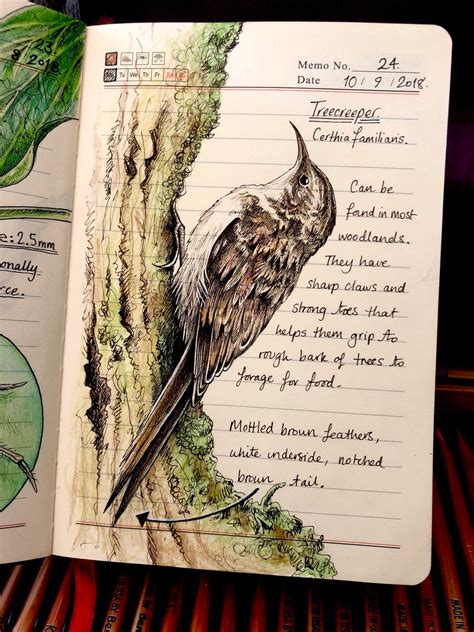 23.
8 2018.
e: 2.5mm
onally
rce.
Tu We Th Fr Sa
Memo No. 24.
Date 10/9/2018.
Treecreeper.
Certhia familiaris.
Can be
found in most
woodlands.
They have
sharp claws and
strong toes that
helps them grip to
rough bark of trees to
forage for food.
Mottled brown feathers,
white underside, notched
brown tail.
MADE IN